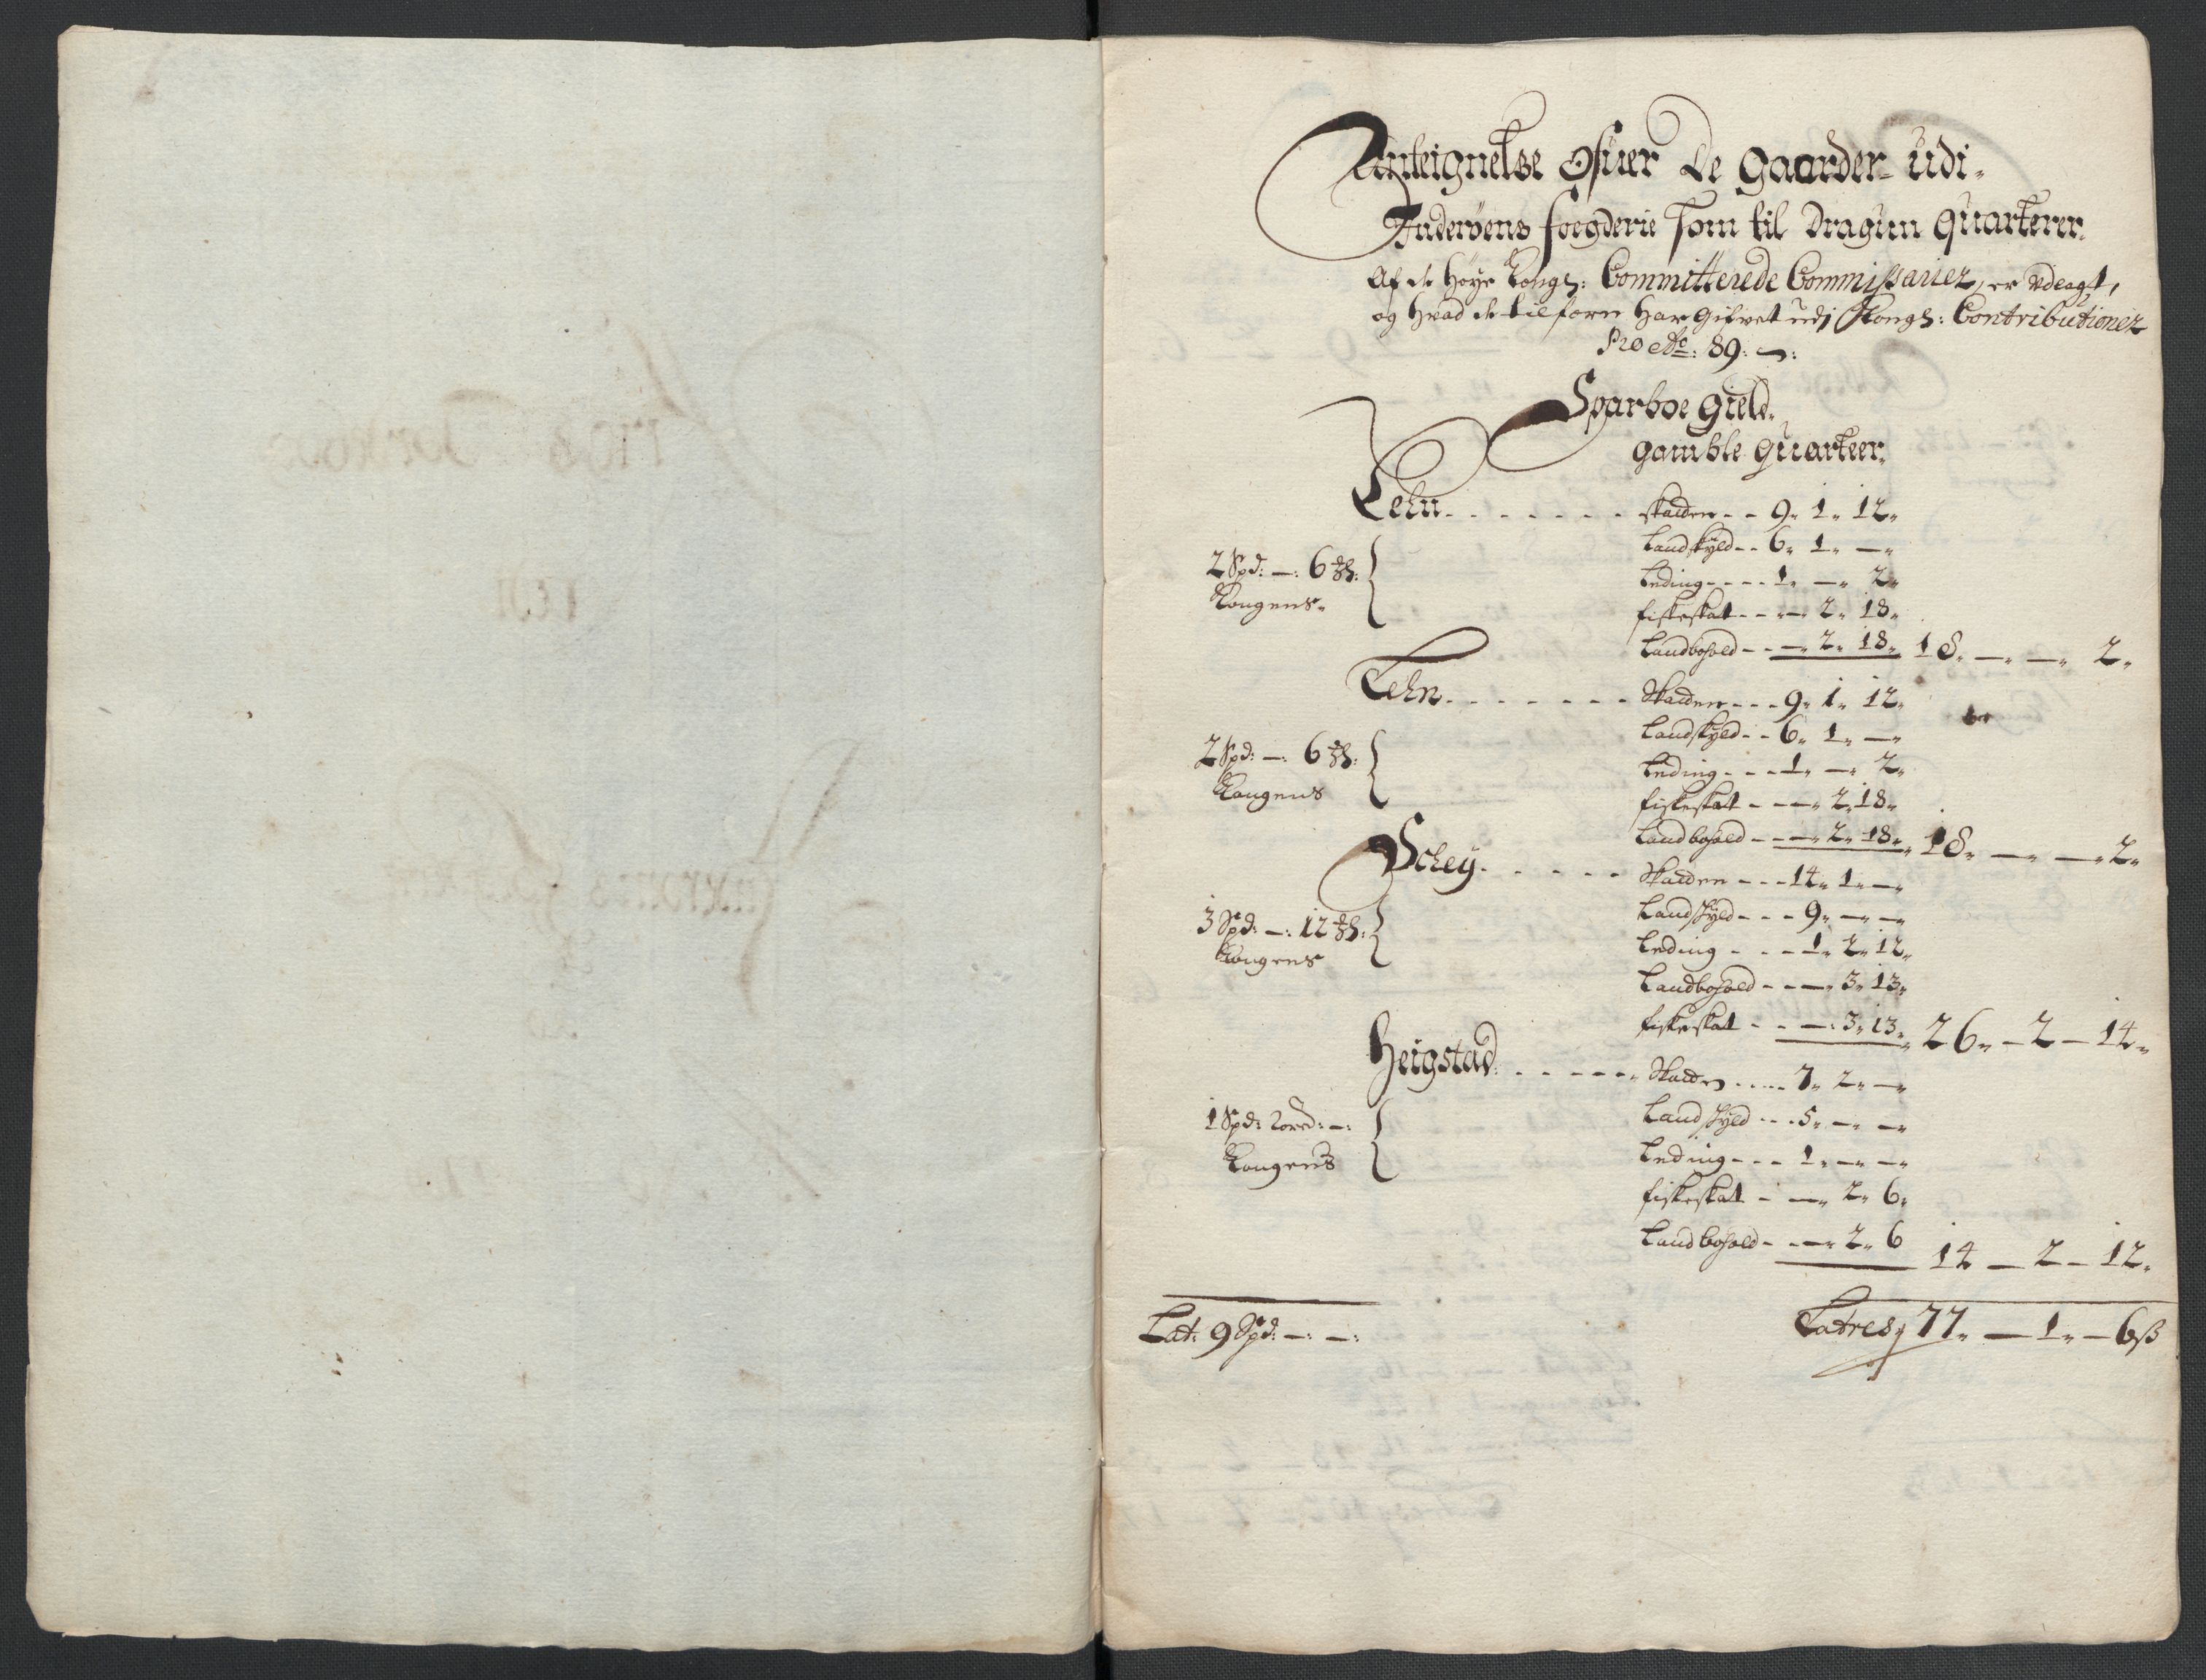 Anteignelse Ofuer de gaarder udi
Inderøens foegderie som til Dragun Quarterer
Af de Høye Kongl: Committerede Commissarier, er Vdlagt,
og hvad de tilforn Har gifvet udj Kongl: Contributioner
Pro Ao: 89:
Sparboe gield
gamble quarteer
Lehn skatder 9. 1. 12.
2 Spd: —: 6 ℔: Landskyld 6. 1. —
Kongens Leding 1. — 2.
fiskeskat — 2. 18.
Landbohold — 2. 18. 18. — — 2.
Lehn Skatder 9. 1. 12.
2 Spd: —: 6 ℔: Landskyld 6. 1. —
Kongens Leding 1. — 2.
fiskeskat — 2. 18.
Landbohold — 2. 18. 18. — — 2.
Schey Skatder 14. 1. —
3 Spd: —: 12 ℔: Landskyld 9. — —
Kongens Leding 1. 2. 12.
Landbohold — 3. 13.
fiskeskat — 3. 13. 26. — 2 — 14.
Heigstad Skatder 7. 2. —
1 Spd: 2 ored: —: Landskyld 5. — —
Kongens Leding 1. — —
fiskeskat — 2. 6.
Landbohold — 2. 6 14 — 2 — 12.
Lat: 9 Spd: —: —: Latres 77. — 1. — 6 ß